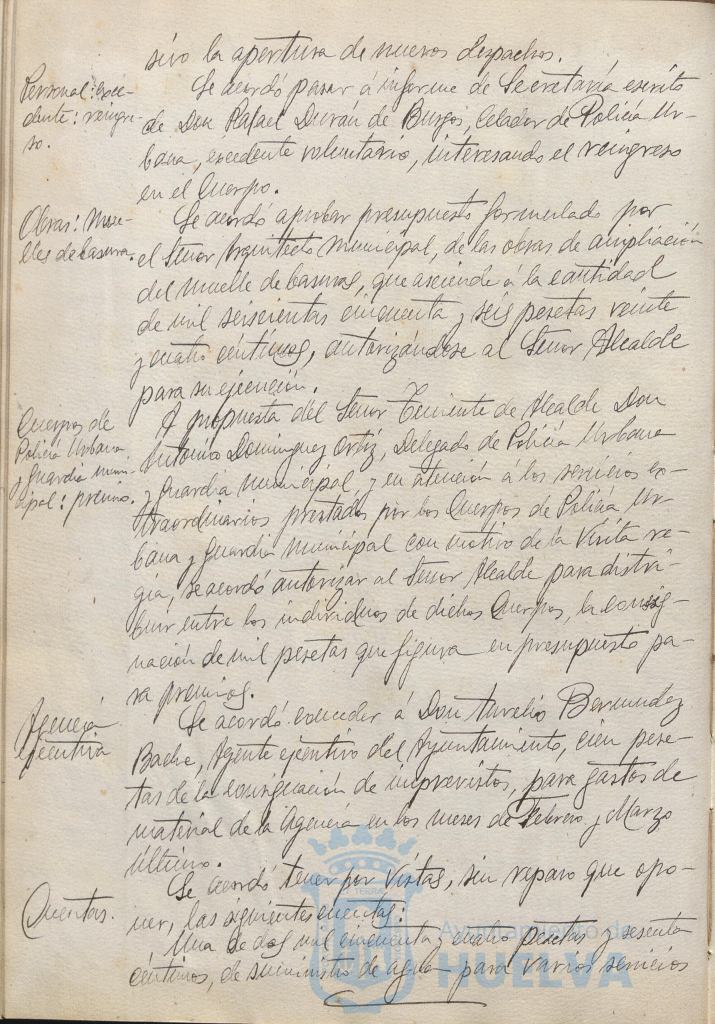 sivo la apertura de nuevos despachos.
Personal: exce-
dente: reingre-
so.
Se acordó pasar á informe de Secretaría escrito
de Don Rafael Durán de Burgos, Celador de Policía Ur-
bana, excedente voluntario, interesando el reingreso
en el Cuerpo.
Obras: Mue-
lles de basura.
Se acordó aprobar presupuesto formulado por
el Señor Arquitecto Municipal, de las obras de ampliación
del muelle de basuras, que asciende á la cantidad
de mil seiscientas cincuenta y seis pesetas veinte
y cuatro céntimos, autorizándose al Señor Alcalde
para su ejecución.
Cuerpos de
Policía Urbana
y Guardia muni-
cipal: premio.
A propuesta del Señor Teniente de Alcalde Don
Antonio Dominguez Ortiz, Delegado de Policía Urbana
y Guardia Municipal y en atención á los servicios ex-
traordinarios prestados por los Cuerpos de Policía Ur-
bana y Guardia Municipal con motivo de la Visita re-
gia, se acordó autorizar al Señor Alcalde para distri-
buir entre los individuos de dichos Cuerpos, la consig-
nación de mil pesetas que figura en presupuesto pa-
ra premios.
Agencia
ejecutiva
Se acordó conceder á Don Aurelio Bermudez
Bache, Agente ejecutivo del Ayuntamiento, cien pese-
tas de la consignación de imprevistos, para gastos de
material de la Agencia en los meses de Febrero y Marzo
último.
Cuentas.
Se acordó tener por vistas, sin reparo que opo-
ner, las siguientes cuentas:
Una de dos mil cincuenta y cuatro pesetas y sesenta
céntimos, de suministro de agua para varios servicios
Ayuntamiento de
HUELVA